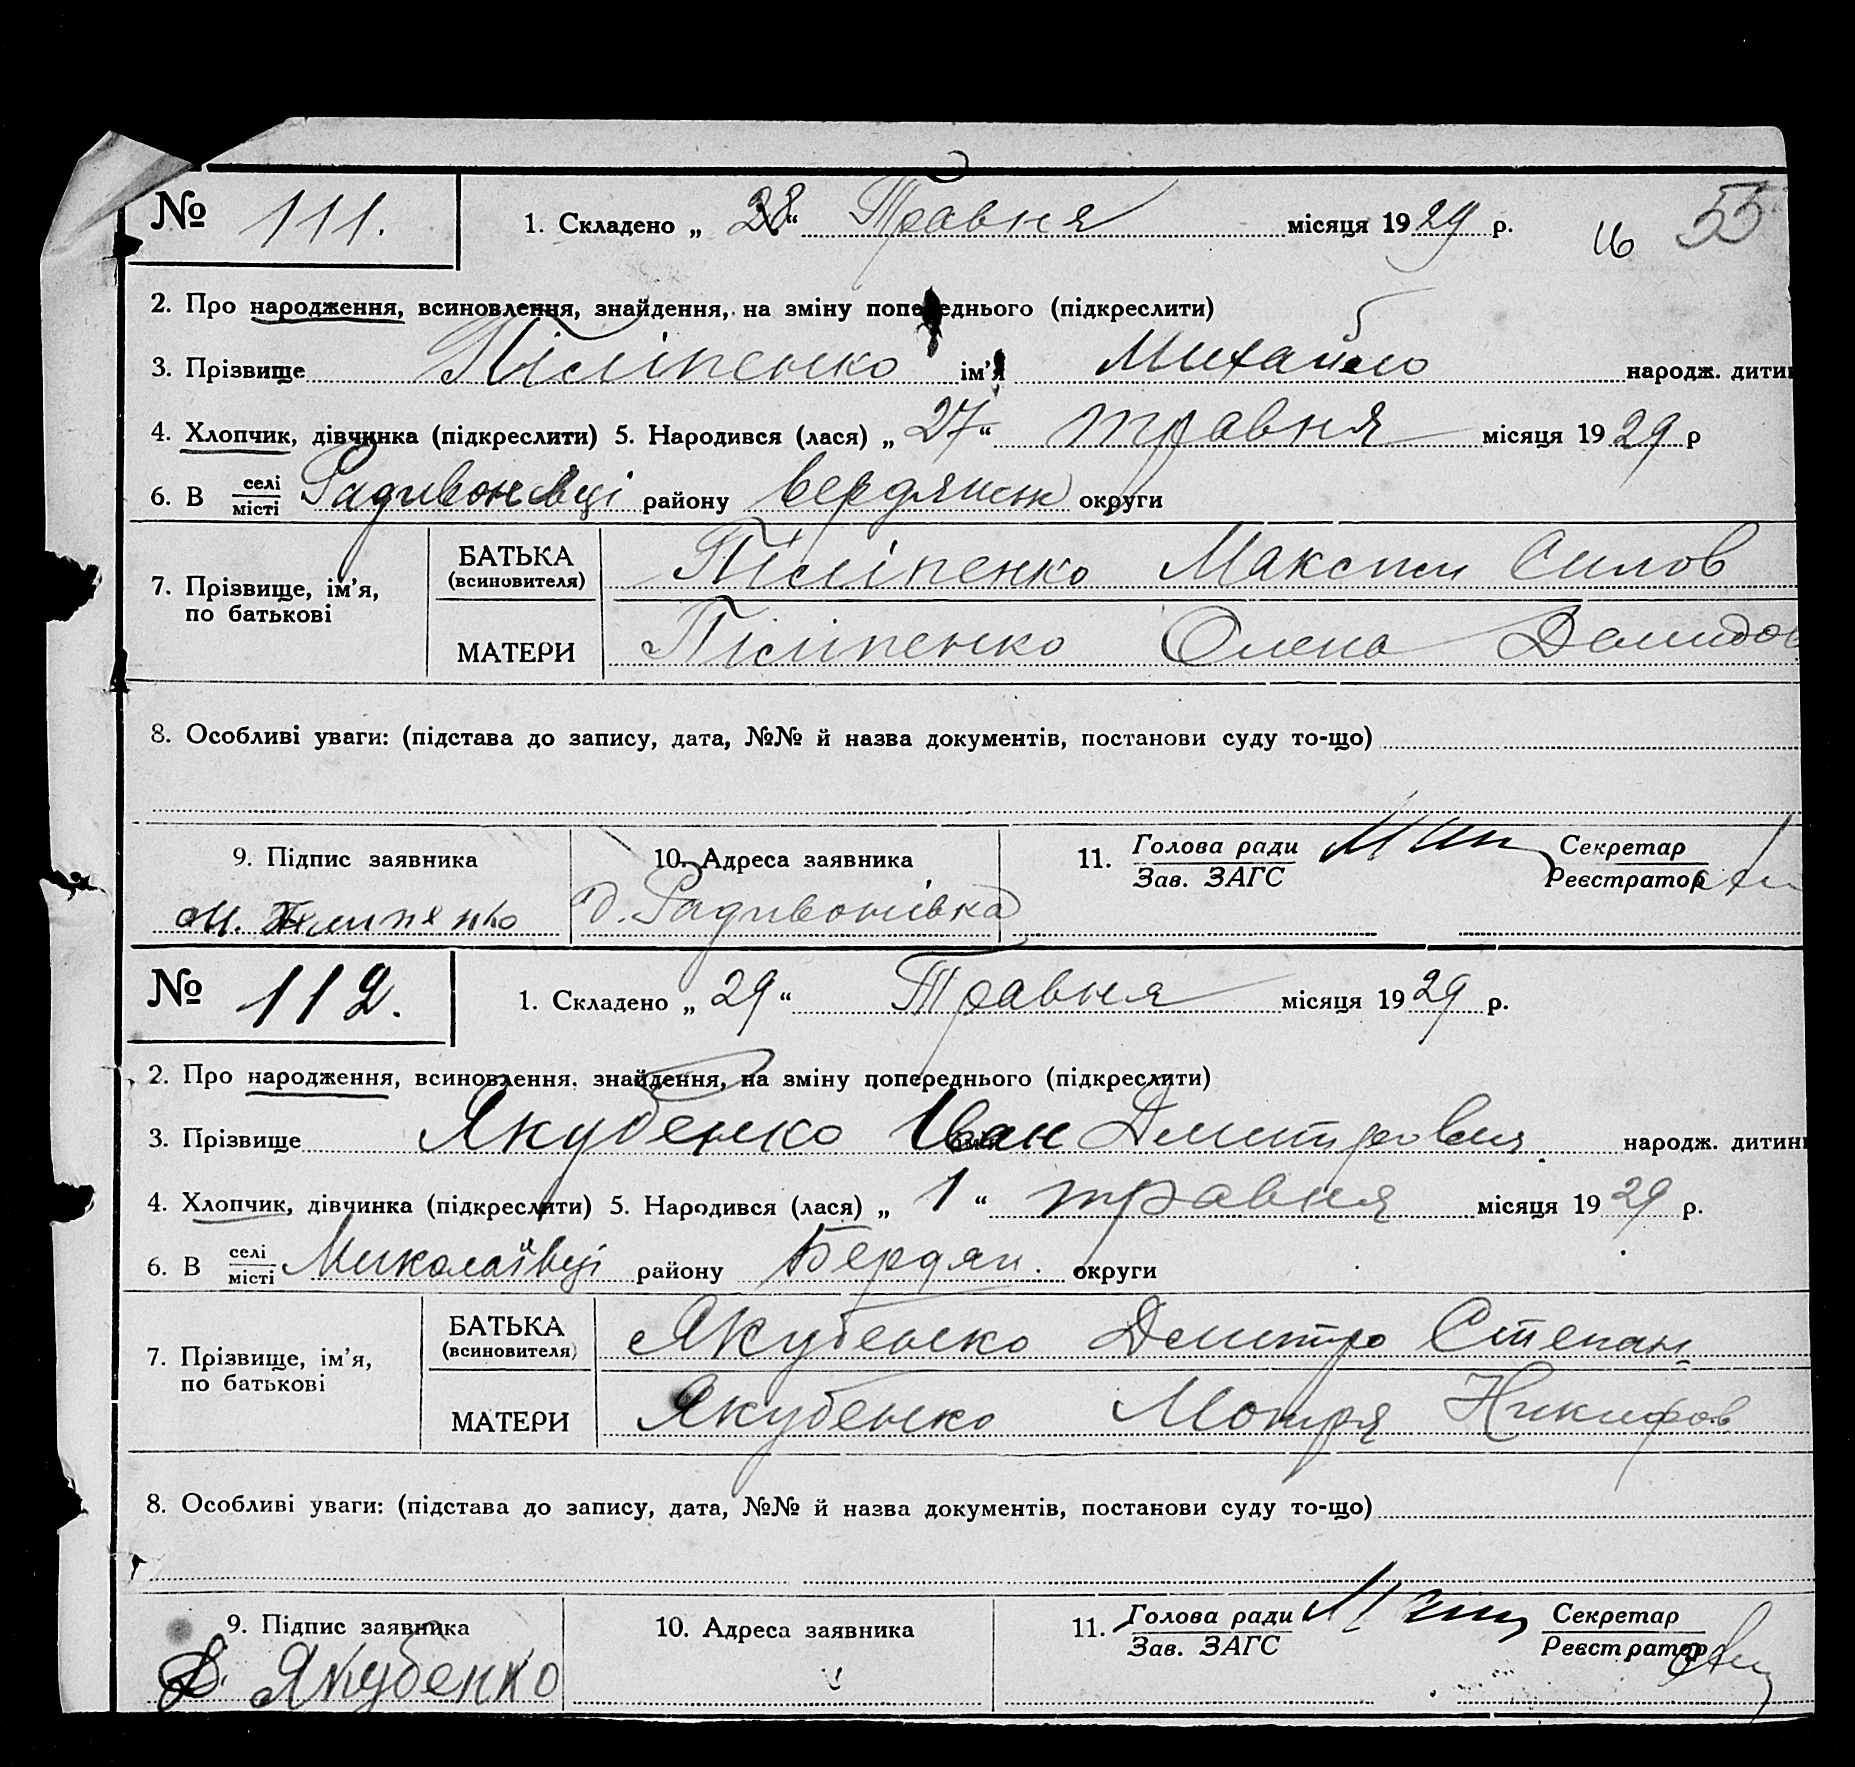 № 111. 1. Складено „ 28 “ Травня місяця 1929 р. 16 55
2. Про народження, всиновлення, знайдення, на зміну попереднього (підкреслити)
3. Прізвище Піліпенко ім'я Михайло народж. дитин
4. Хлопчик, дівчинка (підкреслити) 5. Народився (лася) „ 27 “ травня місяця 1929 р
6. В селі/місті Радивонівці району Бердянськ округи
7. Прізвище, ім'я, по батькові
БАТЬКА (всиновителя) Піліпенко Максим Силов
МАТЕРИ Піліпенко Олена Демидов
8. Особливі уваги: (підстава до запису, дата, №№ й назва документів, постанови суду то-що)
9. Підпис заявника 10. Адреса заявника 11. Голова ради/Зав. ЗАГС Секретар/Реєстратор
М. д. Радивонівка
№ 112. 1. Складено „ 29 “ Травня місяця 1929 р.
2. Про народження, всиновлення, знайдення, на зміну попереднього (підкреслити)
3. Прізвище Якубенко Іван Дмитрович народж. дитин
4. Хлопчик, дівчинка (підкреслити) 5. Народився (лася) „ 1 “ травня місяця 1929 р.
6. В селі/місті Миколаївці району Бердян. округи
7. Прізвище, ім'я, по батькові
БАТЬКА (всиновителя) Якубенко Дмитро Степан
МАТЕРИ Якубенко Мотря Никифов
8. Особливі уваги: (підстава до запису, дата, №№ й назва документів, постанови суду то-що)
9. Підпис заявника 10. Адреса заявника 11. Голова ради/Зав. ЗАГС Секретар/Реєстратор
Д. Якубенко